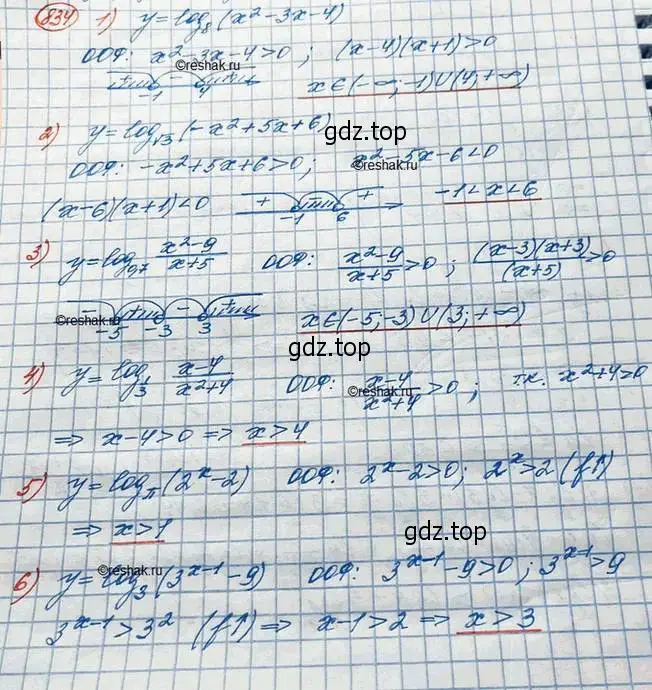 834 1) y = log₈(x² - 3x - 4)
ООФ: x² - 3x - 4 > 0 ; (x-4)(x+1) > 0
©reshak.ru
+ - +
-1 4 x ∈ (-∞; -1) ∪ (4; +∞)
2) y = log√3 (-x² + 5x + 6)
gdz.top
ООФ: -x² + 5x + 6 > 0 ; x² - 5x - 6 < 0
(x-6)(x+1) < 0 + - + -1 < x < 6
-1 6
3) y = log₀,₇ (x²-9)/(x+5) ООФ: (x²-9)/(x+5) > 0 ; (x-3)(x+3)/(x+5) > 0
- + - +
©reshak.ru
-5 -3 3 x ∈ (-5; -3) ∪ (3; +∞)
gdz.top
4) y = log_1/3 (x-4)/(x²+4) ООФ: (x-4)/(x²+4) > 0 ; т.к. x²+4 > 0
©reshak.ru
⇒ x-4 > 0 ⇒ x > 4
5) y = log_π (2ˣ - 2) ООФ: 2ˣ - 2 > 0 ; 2ˣ > 2 (f↑)
⇒ x > 1
gdz.top
©reshak.ru
6) y = log₃ (3ˣ⁻¹ - 9) ООФ: 3ˣ⁻¹ - 9 > 0 ; 3ˣ⁻¹ > 9
3ˣ⁻¹ > 3² (f↑) ⇒ x-1 > 2 ⇒ x > 3
gdz.top